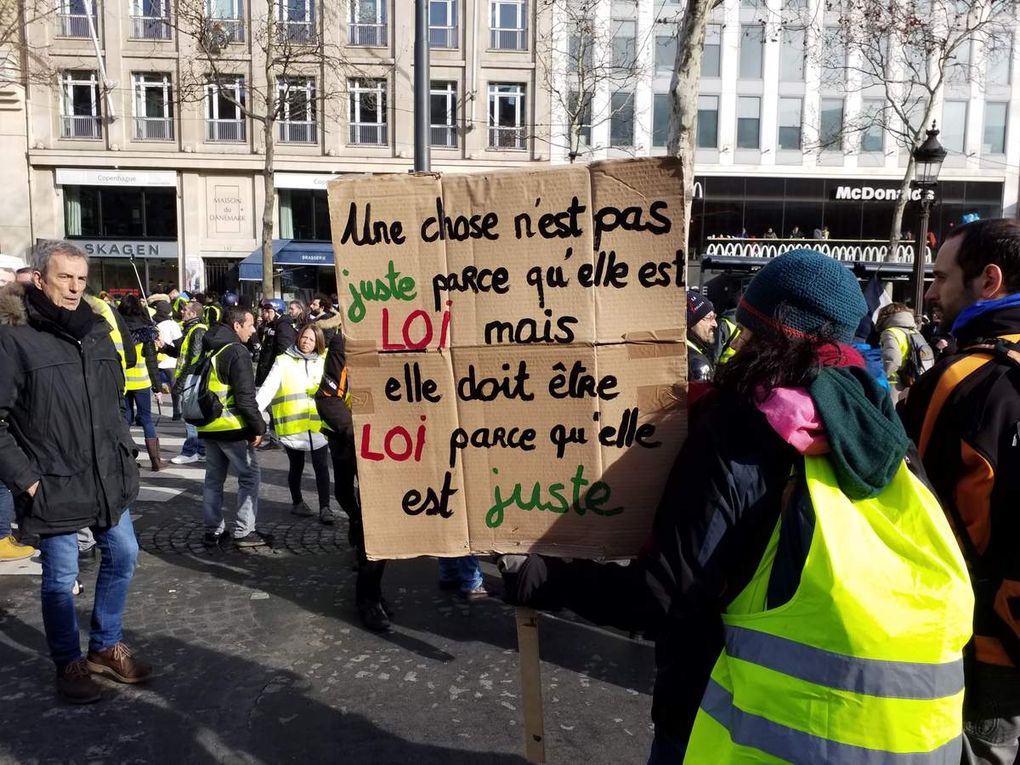 Copenhague
MAISON
du
DANEMARK
142
SKAGEN
BRASSERIE
McDonald's
Une chose n'est pas
juste parce qu'elle est
LOi mais
elle doit être
LOi parce qu'elle
est juste